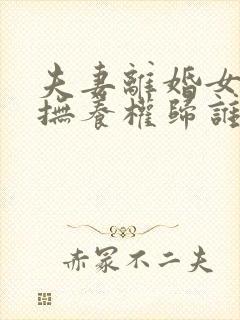 夫妻離婚女
撫養權歸誰
赤冢不二夫